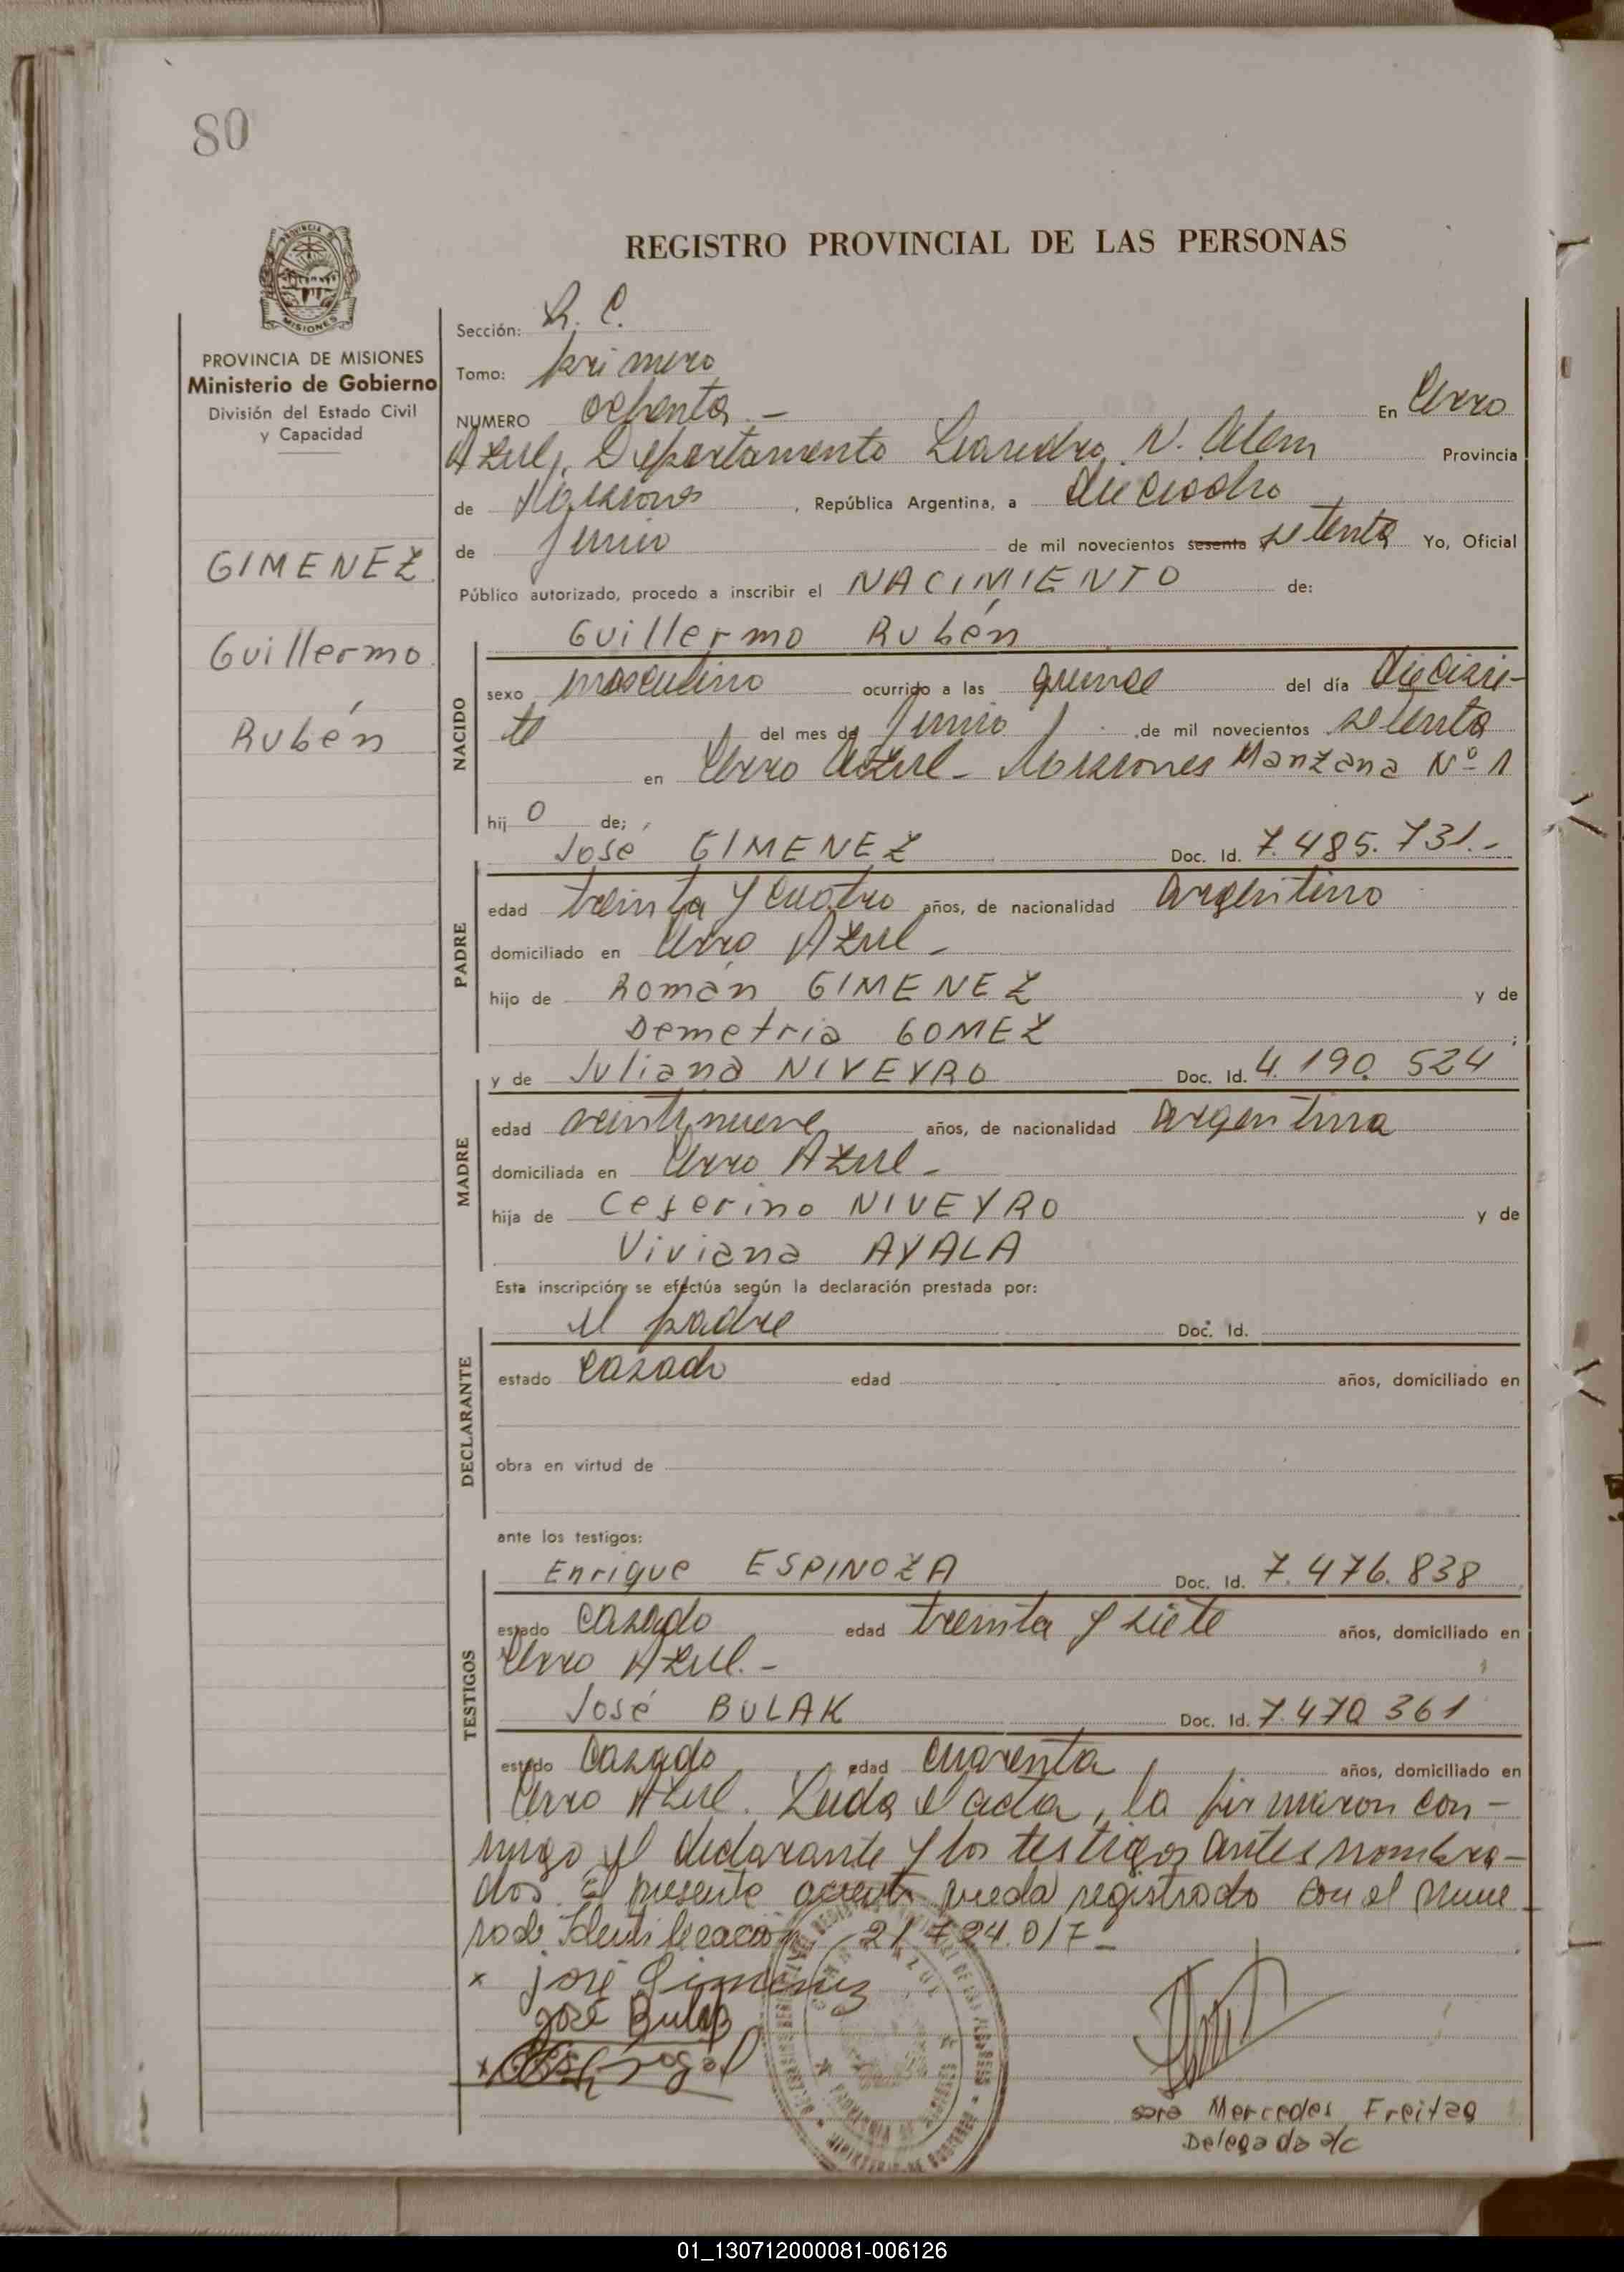 80
REGISTRO PROVINCIAL DE LAS PERSONAS
PROVINCIA DE MISIONES
Ministerio de Gobierno
División del Estado Civil
y Capacidad
GIMENEZ
Guillermo
Rubén
Sección: R. C.
Tomo: primero
NUMERO ochenta.- En Cerro
Azul, Departamento Leandro N. Alem Provincia
de Misiones, República Argentina, a dieciocho
de Junio de mil novecientos sesenta setenta Yo, Oficial
Público autorizado, procedo a inscribir el NACIMIENTO de:
Guillermo Rubén
NACIDO
sexo masculino ocurrido a las quince del día diecisie-
te del mes de Junio de mil novecientos setenta
en Cerro Azul - Misiones Manzana Nº 1
hij o de;
José GIMENEZ Doc. Id. 7.485.731.-
PADRE
edad treinta y cuatro años, de nacionalidad argentino
domiciliado en Cerro Azul -
hijo de Román GIMENEZ y de
Demetria GOMEZ ;
y de Juliana NIVEYRO Doc. Id. 4.190.524
MADRE
edad veintinueve años, de nacionalidad argentina
domiciliada en Cerro Azul -
hija de Ceferino NIVEYRO y de
Viviana AYALA
Esta inscripción se efectúa según la declaración prestada por:
el padre Doc. Id.
DECLARANTE
estado casado edad años, domiciliado en
obra en virtud de
ante los testigos:
Enrique ESPINOZA Doc. Id. 7.476.838
TESTIGOS
estado casado edad treinta y siete años, domiciliado en
Cerro Azul.-
José BULAK Doc. Id. 7.470.361
estado casado edad cuarenta años, domiciliado en
Cerro Azul. Leida el acta, la firmaron con-
migo el declarante y los testigos antes nombra-
dos. El presente queda registrado con el nume
ro de Identificacion 21.724.017-
x José Gimenez
José Bulak
sara Mercedes Freitag
Delegada a/c
01_130712000081-006126